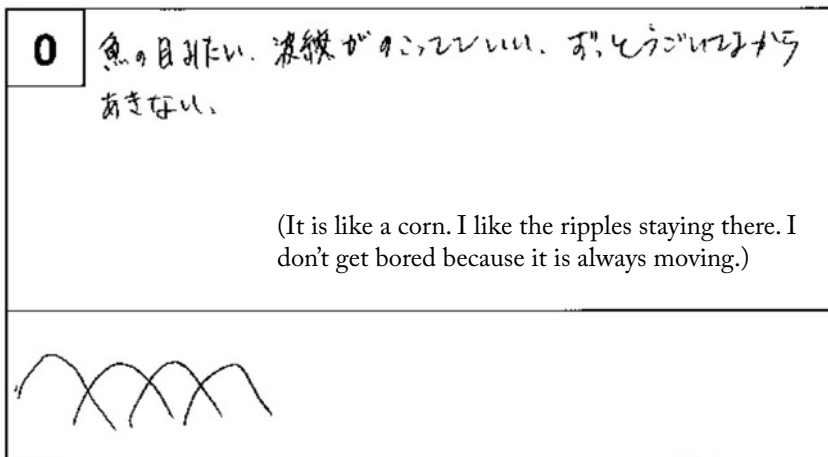 0
魚の目みたい. 波線がのこってていい. ずっとうごいてるから
あきない.
(It is like a corn. I like the ripples staying there. I
don't get bored because it is always moving.)